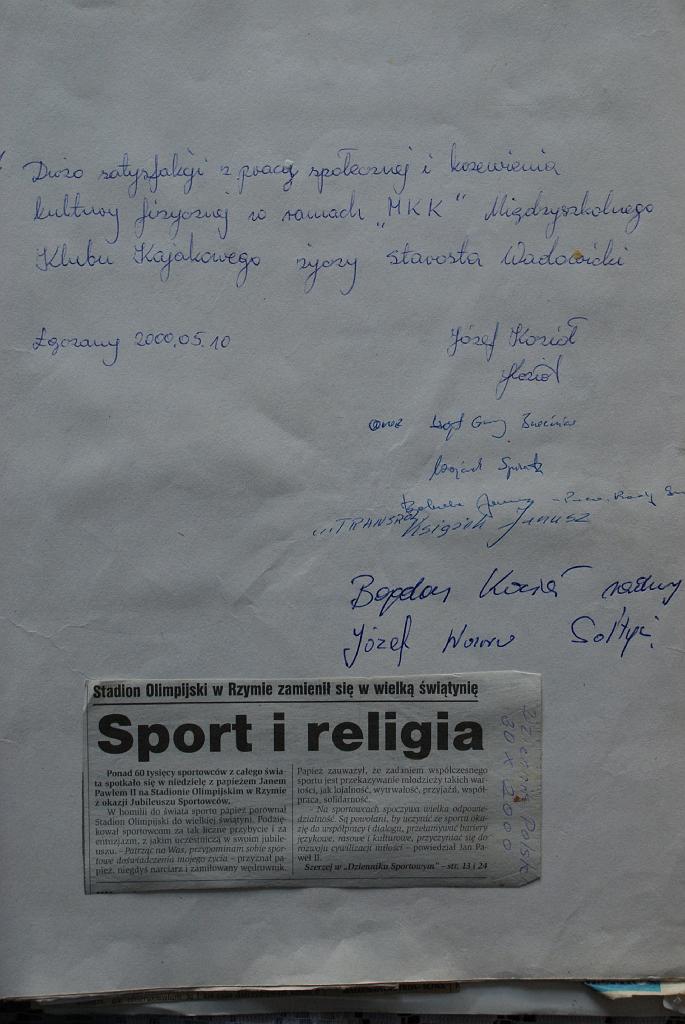 Dużo satysfakcji z pracy społecznej i krzewienia
kultury fizycznej w ramach „MKK" Międzyszkolnego
Klubu Kajakowego życzy Starosta Wadowicki
Łączany 2000.05.10
Józef Kozioł
Kozioł
oraz
Książek Janusz
Bogdan Kozioł radny
Józef Sołtys
Stadion Olimpijski w Rzymie zamienił się w wielką świątynię
Sport i religia
Ponad 60 tysięcy sportowców z całego świa-
ta spotkało się w niedzielę z papieżem Janem
Pawłem II na Stadionie Olimpijskim w Rzymie
z okazji Jubileuszu Sportowców.
W homilii do świata sportu papież porównał
Stadion Olimpijski do wielkiej świątyni. Podzię-
kował sportowcom za tak liczne przybycie i za
entuzjazm, z jakim uczestniczą w swoim jubile-
uszu. – Patrząc na Was, przypominam sobie spor-
towe doświadczenia mojego życia – przyznał pa-
pież, niegdyś narciarz i zamiłowany wędrownik.
Papież zauważył, że zadaniem współczesnego
sportu jest przekazywanie młodzieży takich war-
tości, jak lojalność, wytrwałość, przyjaźń, współ-
praca, solidarność.
– Na sportowcach spoczywa wielka odpowie-
dzialność. Są powołani, by uczynić ze sportu oka-
zję do współpracy i dialogu, przełamywać bariery
językowe, rasowe i kulturowe, przyczyniać się do
rozwoju cywilizacji miłości – powiedział Jan Pa-
weł II.
Szerzej w „Dzienniku Sportowym" – str. 13 i 24
Dziennik Polski
30 X 2000